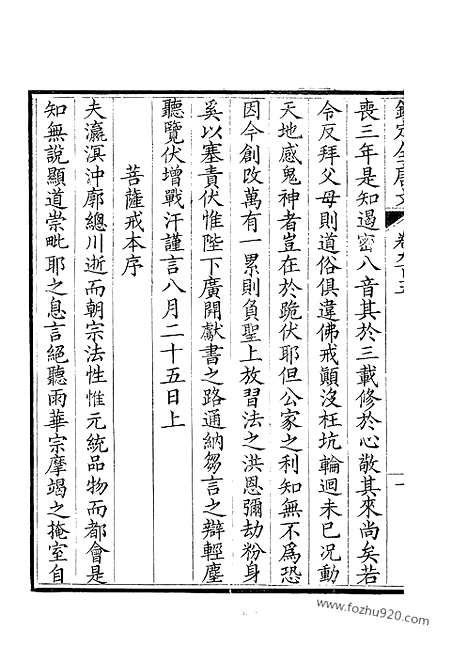 欽定全唐文 卷九百五 一
喪三年是知遏密八音其於三載修於心敬其來尚矣若
令反拜父母則道俗俱違佛戒顛沒枉坑輪迴未已況動
天地感鬼神者豈在於跪伏耶但公家之利知無不爲恐
因今創改萬有一累則負聖上放習法之洪恩彌劫粉身
奚以塞責伏惟陛下廣開獻書之路通納芻言之辯輕塵
聽覽伏增戰汗謹言八月二十五日上
菩薩戒本序
夫瀛溟沖廓總川逝而朝宗法性惟元統品物而都會是
知無說顯道崇毗耶之息言絕聽雨華宗摩竭之掩室自
www.fozhu920.com